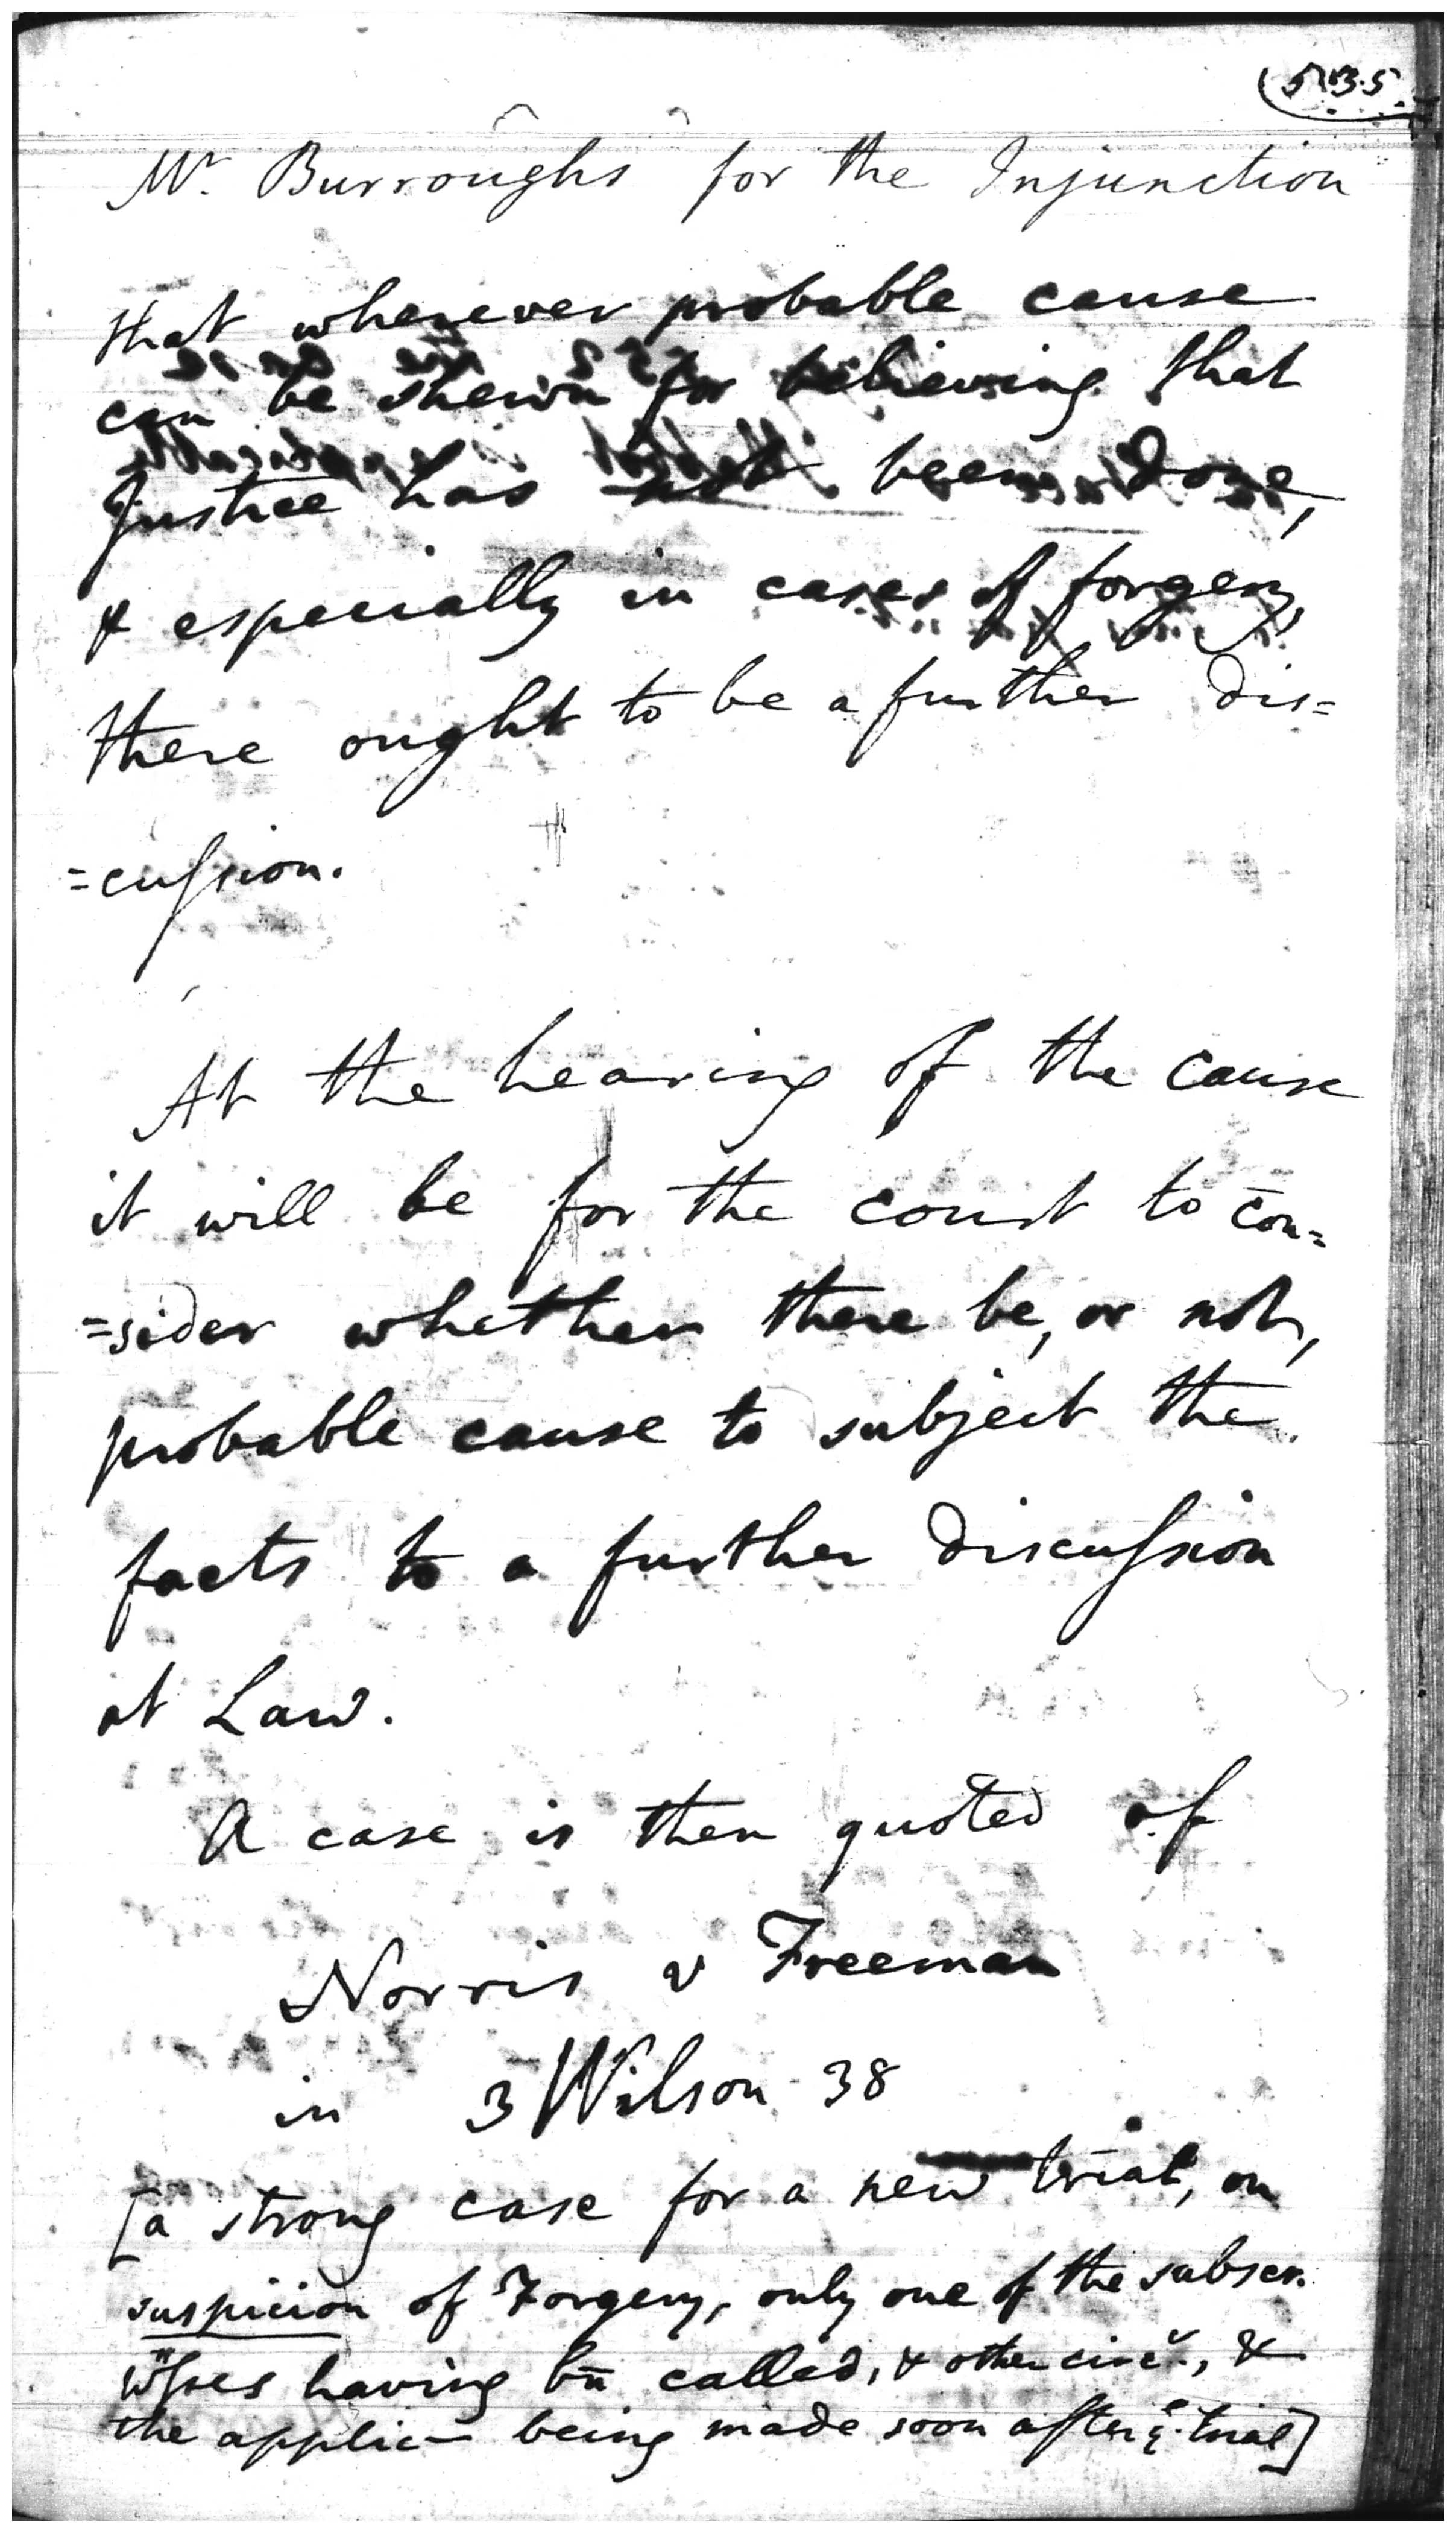 (513.5
Mr. Burroughs for the Injunction
that wherever probable cause
can be shewn for believing that
Justice has not been done,
& especially in cases of forgery,
there ought to be a further dis=
=cuſsion.
At the hearing of the cause
it will be for the court to con=
=sider whether there be, or not,
probable cause to subject the
facts to a further discuſsion
at Law.
A case is then quoted of
Norris v Freeman
in 3 Wilson 38
[a strong case for a new trial, on
suspicion of Forgery, only one of the subscr.
having bn called, & other circ., &
the applicn being made soon after ye. trial]